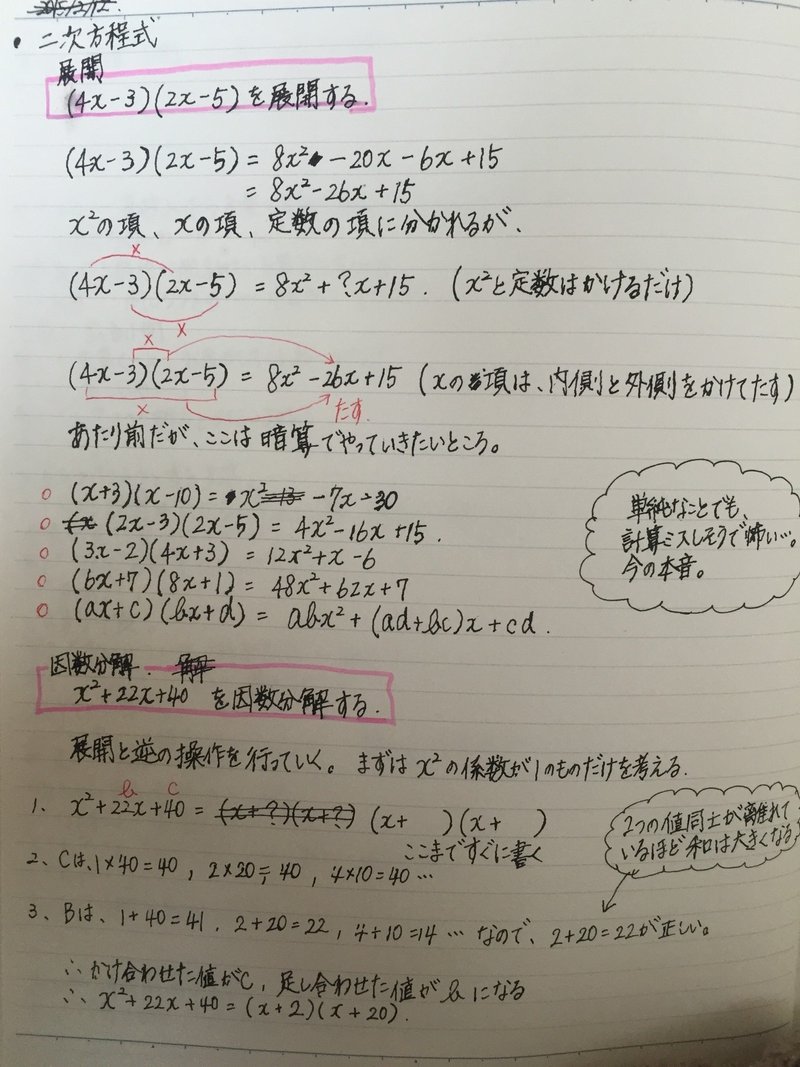 2015/2/12.
• 二次方程式
展開
(4x-3)(2x-5)を展開する.
(4x-3)(2x-5) = 8x² -20x-6x+15
= 8x²-26x+15
x²の項、xの項、定数の項に分かれるが、
×
(4x-3)(2x-5) = 8x²+?x+15. (x²と定数はかけるだけ)
×
×
(4x-3)(2x-5) = 8x²-26x+15 (xの項は、内側と外側をかけてたす)
×
たす.
あたり前だが、ここは暗算でやっていきたいところ。
○ (x+3)(x-10) = x² -7x-30
○ (2x-3)(2x-5) = 4x²-16x+15.
○ (3x-2)(4x+3) = 12x²+x-6
○ (6x+7)(8x+1) = 48x²+62x+7
○ (ax+c)(bx+d) = abx²+(ad+bc)x+cd.
単純なことでも、
計算ミスしそうで怖い…。
今の本音。
因数分解. 解
x²+22x+40 を因数分解する.
展開と逆の操作を行っていく。まずはx²の係数が1のものだけを考える.
b c
1. x²+22x+40 = (x+?)(x+?) (x+ )(x+ )
ここまですぐに書く
2つの値同士が離れて
いるほど和は大きくなる
2. Cは、1×40=40, 2×20=40, 4×10=40…
3. Bは、1+40=41, 2+20=22, 4+10=14 … なので、2+20=22が正しい。
∴ かけ合わせた値がC, 足し合わせた値がbになる
∴ x²+22x+40 = (x+2)(x+20).